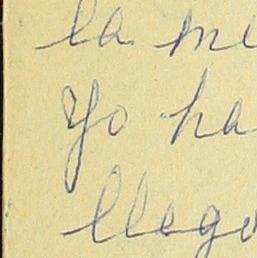 la me
Yo ha
llego